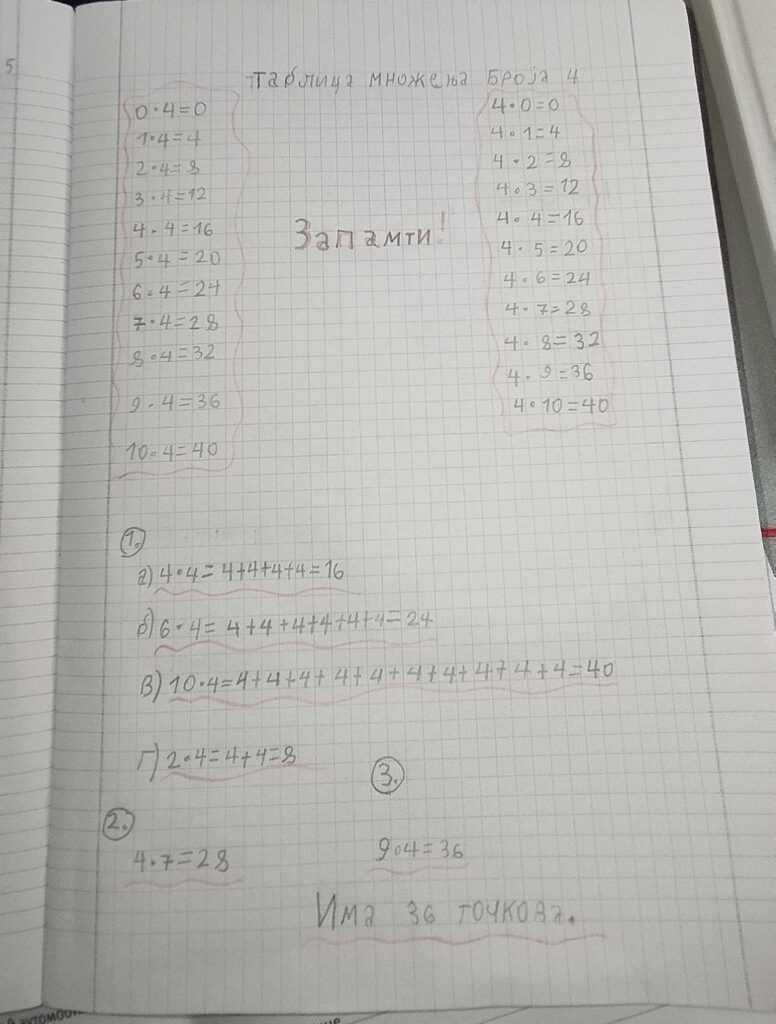 5
Таблица множења броја 4
0·4=0
1·4=4
2·4=8
3·4=12
4·4=16
5·4=20
6·4=24
7·4=28
8·4=32
9·4=36
10·4=40
Запамти!
4·0=0
4·1=4
4·2=8
4·3=12
4·4=16
4·5=20
4·6=24
4·7=28
4·8=32
4·9=36
4·10=40
1.
а) 4·4=4+4+4+4=16
б) 6·4=4+4+4+4+4+4=24
В) 10·4=4+4+4+4+4+4+4+4+4+4=40
Г) 2·4=4+4=8
2.
4·7=28
3.
9·4=36
Има 36 точкова.